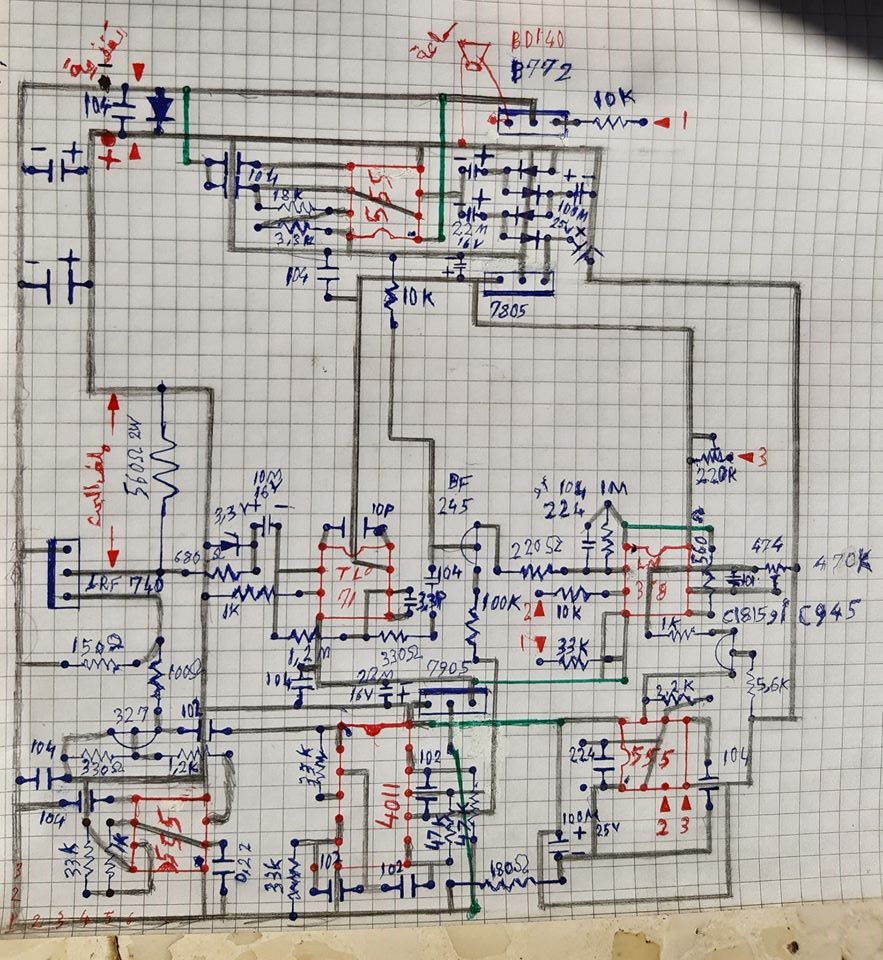 BD140
B772
10K
1
104
104
18K
3,3K
555
22M
16V
100M
25V
104
10K
7805
3
220K
560Ω 2W
3,3V
10M
16V
10P
BF
245
104
224
1M
680
IRF 740
1K
TL0
71
104
33P
100K
220Ω
2
10K
1
33K
358
560Ω
474
470K
C1815
C945
1K
150Ω
100Ω
1,2M
330Ω
104
22M
16V
7905
3,2K
5,6K
327
102
104
330Ω
1,2K
33K
4011
102
224
555
104
2 3
104
33K
1K
555
0,22
33K
102
102
47K
100M
25V
180Ω
3
2
1 2 3 4 5 6